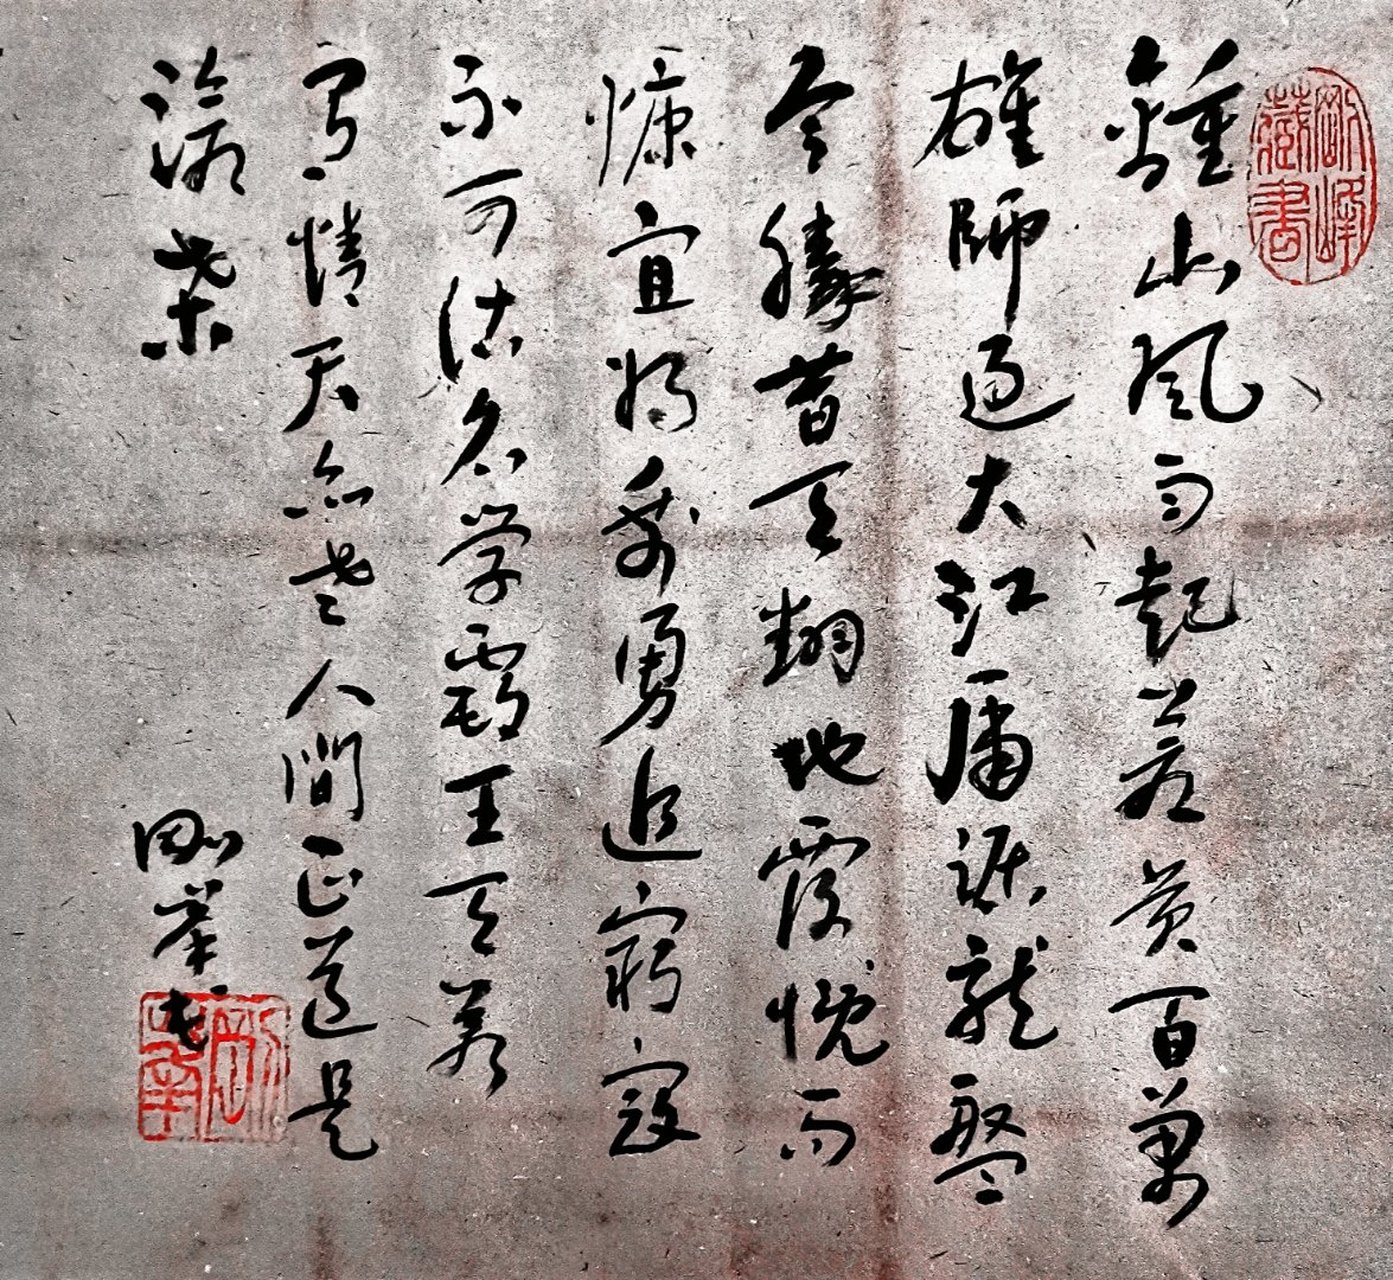 剛峰藏書
鍾山風雨起蒼黃百萬
雄師過大江虎踞龍盤
今勝昔天翻地覆慨而
慷宜將剩勇追窮寇
不可沽名学霸王天若
有情天亦老人間正道是
滄桑
剛峯
剛峯